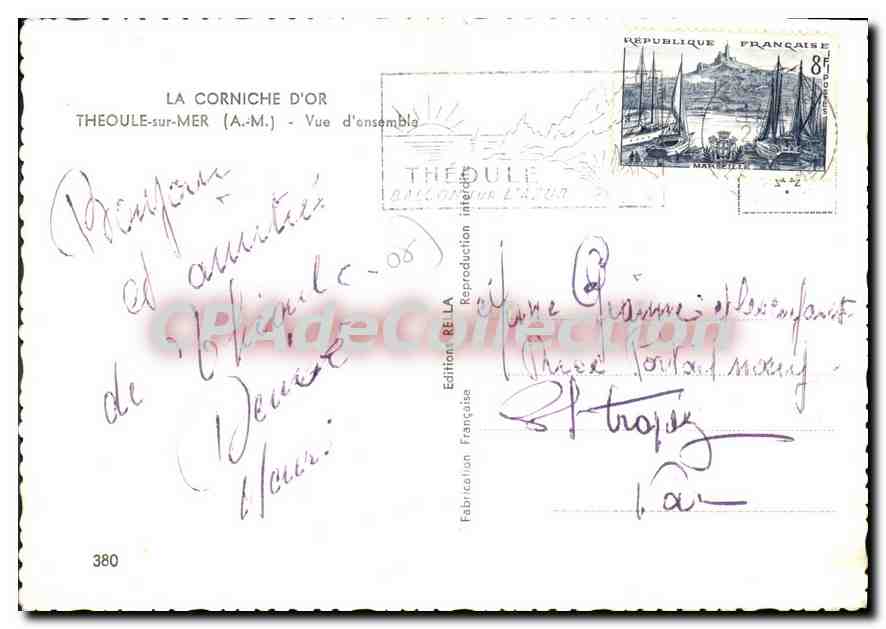 LA CORNICHE D'OR
THEOULE-sur-MER (A.-M.) - Vue d'ensemble
RÉPUBLIQUE FRANÇAISE
8F
POSTES
MARSEILLE
THÉOULE
BALCON SUR L'AZUR
Bonjour
et amitiés
de Théoule
Denise
Henri
380
Editions RELLA
Fabrication Française
Reproduction interdite
Mme
et les enfants
St tropez
Var
CPAdeCollection